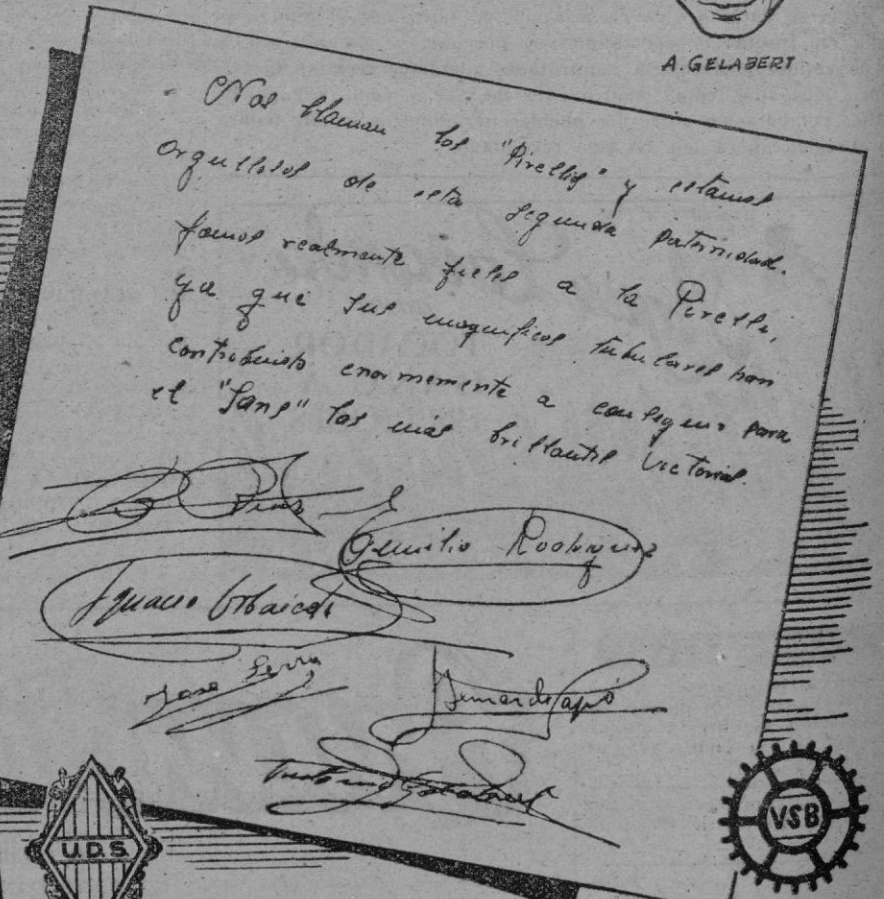 A. GELABERT
Nos llaman los "Pirellis" y estamos
orgullosos de esta segunda paternidad.
Somos realmente fieles a la Pirelli,
ya que sus magnificos tubulares han
contribuido enormemente a conseguir para
el "Sans" las más brillantes victorias.
Emilio Rodriguez
Ignacio Orbaiceta
Jose Serra
Bernardo Capó
U.D.S
VSB